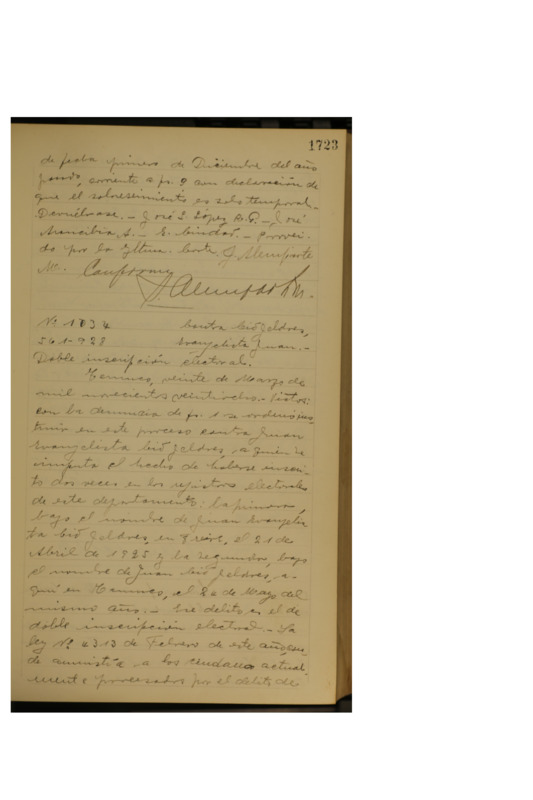 1723
de fecha primero de Diciembre del año
pasado, corriente a fs. 9 con declaración de
que el sobreseimiento es solo temporal.-
Devuélvase.- José L. López A.P.- José
Arancibia A.- E. Proveí-
do por la Iltma. Corte. J. Alemparte
M. Conforme
J. Alemparte M.
Nº 1734 Contra Cid Jeldres,
561-928 Evangelista Juan.-
Doble inscripción electoral.
Temuco, veinte de Marzo de
mil novecientos veintiocho.- Vistos:
con la denuncia de fs. 1 se ordenó ins-
truir en este proceso contra Juan
Evangelista Cid Jeldres, a quien se
imputa el hecho de haberse inscri-
to dos veces en los registros electorales
de este departamento: la primera,
bajo el nombre de Juan Evangelis
ta Cid Jeldres, en el 21 de
Abril de 1925 y la segunda, bajo
el nombre de Juan Cid Jeldres, a-
quí en Temuco, el 20 de Mayo del
mismo año.- Ese delito es el de
doble inscripción electoral.- La
ley Nº 4313 de Febrero de este año,
de amnistía a los actual
mente procesados por el delito de